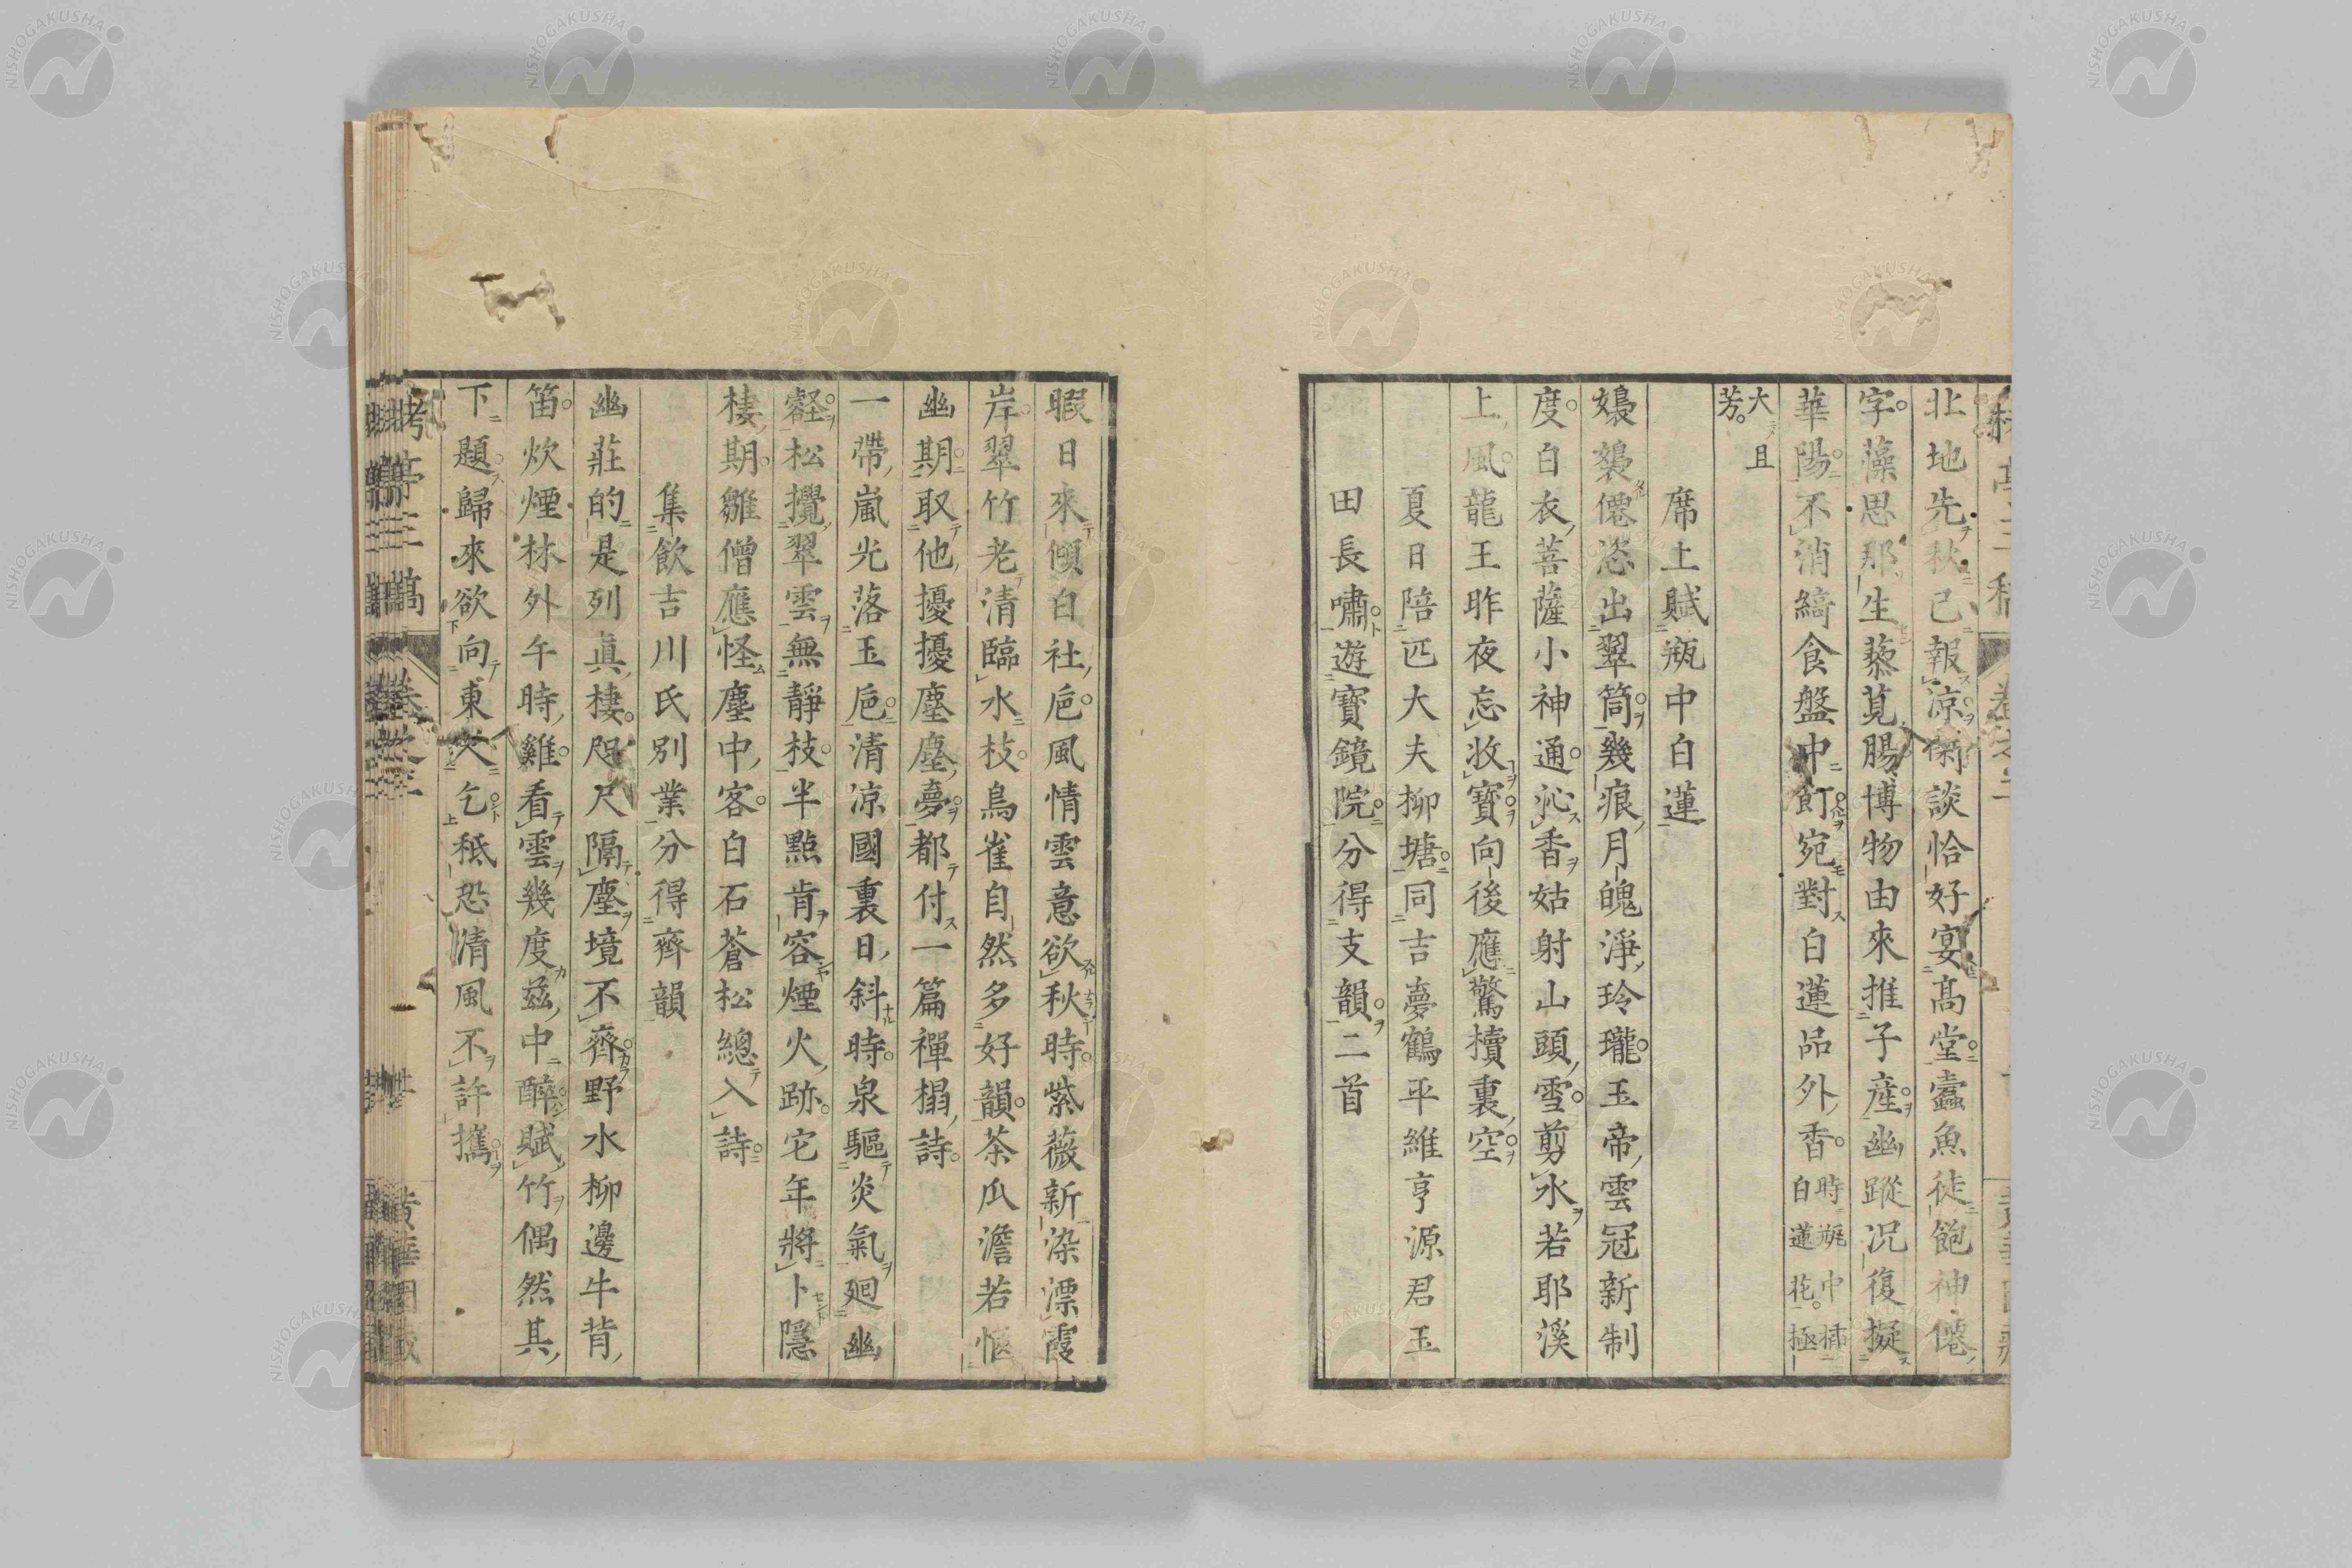 北地先秋已報涼衡談恰好宴高堂蠹魚徒飽神僊
字藻思那生藜莧腸博物由來推子産幽蹤況復擬
華陽不消綺食盤中飣宛對白蓮品外香時瓶中插白蓮花極
大且芳
席上賦瓶中白蓮
嬝嬝僊恣出翠筒幾痕月魄淨玲瓏玉帝雲冠新制
度白衣菩薩小神通沁香姑射山頭雪剪水若耶溪
上風龍王昨夜忘收寶向後應驚櫝裏空
夏日陪匹大夫柳塘同吉夢鶴平維亨源君玉
田長嘯遊寶鏡院分得支韻二首
暇日來傾白社巵風情雲意欲秋時紫薇新染漂霞
岸翠竹老清臨水枝鳥雀自然多好韻茶瓜澹若愜
幽期取他擾擾塵塵夢都付一篇禪榻詩
一帶嵐光落玉巵清凉國裏日斜時泉驅炎氣廻幽
壑松攪翠雲無靜枝半點肯容煙火跡它年將卜隱
棲期雛僧應怪塵中客白石蒼松總入詩
集飲吉川氏別業分得齊韻
幽莊的是列眞棲咫尺隔塵境不齊野水柳邊牛背
笛炊煙林外午時雞看雲幾度茲中醉賦竹偶然其
下題歸來欲向東人乞秪恐清風不許攜